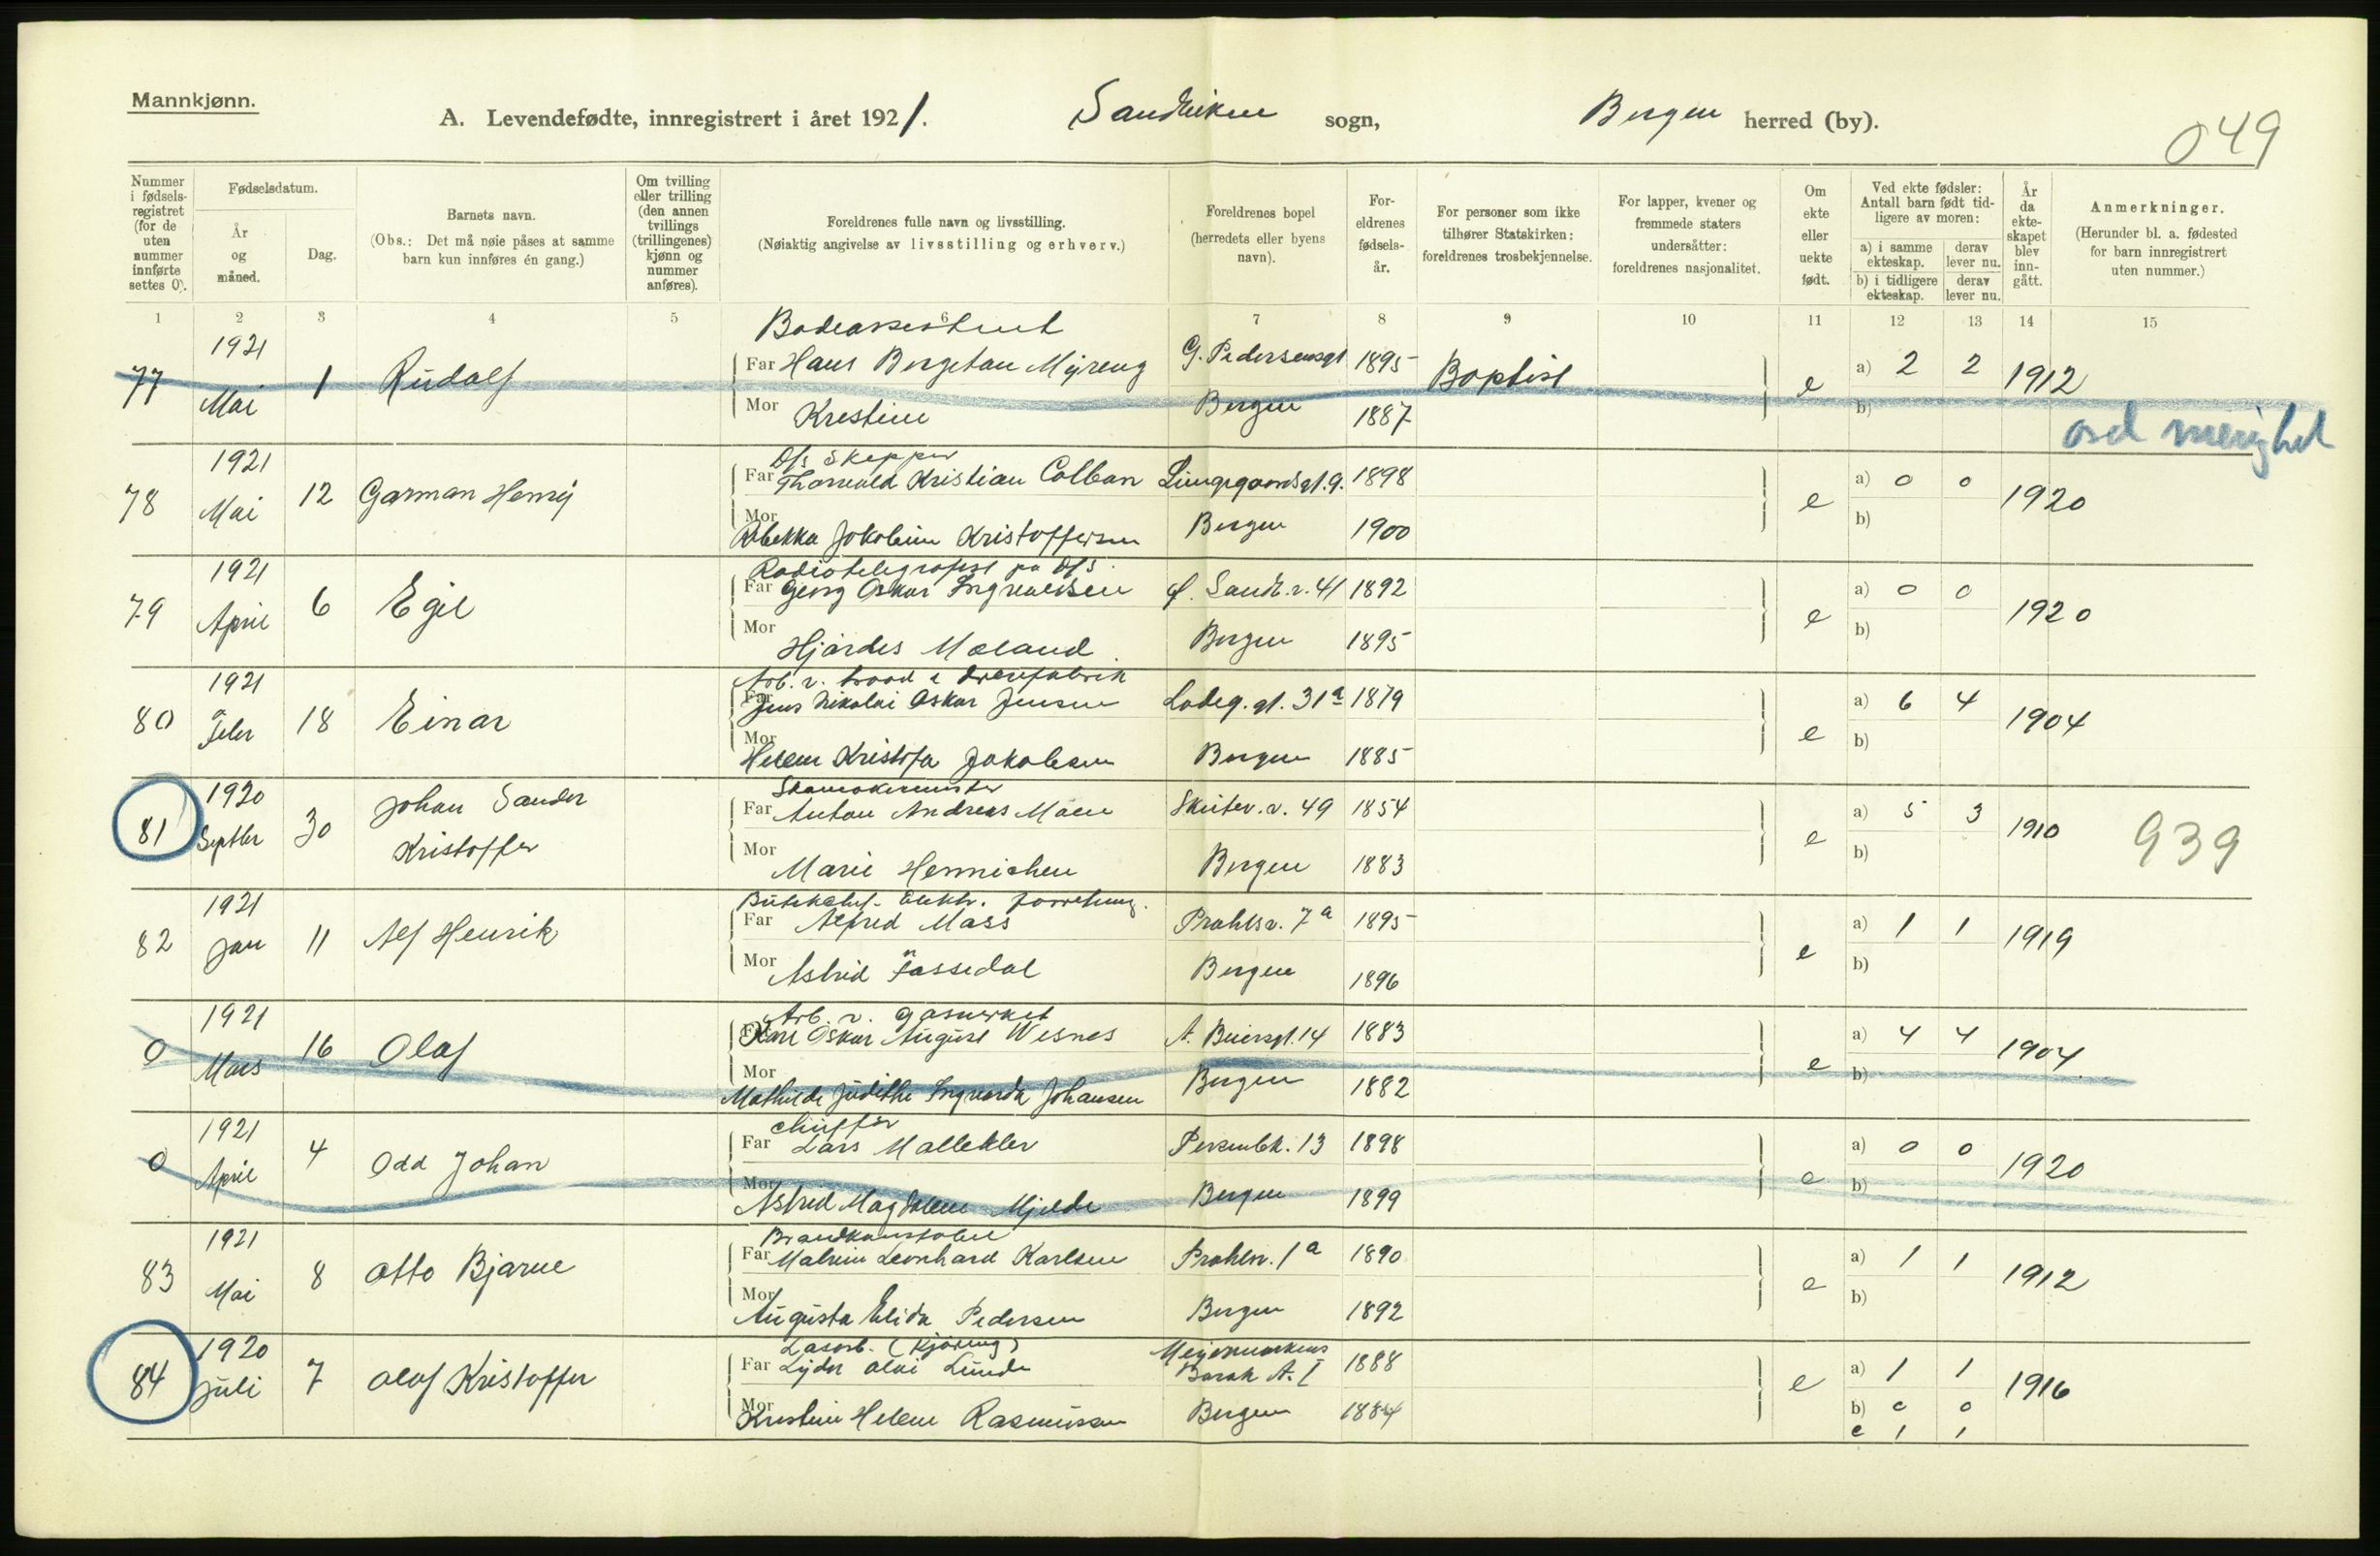 Mannkjønn.
A. Levendefødte, innregistrert i året 1921. Sandviken sogn, Bergen herred (by).
049
Nummer i fødselsregistret (for de uten nummer innførte settes 0).
Fødselsdatum.
År og måned.
Dag.
Barnets navn.
(Obs.: Det må nøie påses at samme barn kun innføres én gang.)
Om tvilling eller trilling (den annen tvillings (trillingenes) kjønn og nummer anføres).
Foreldrenes fulle navn og livsstilling.
(Nøiaktig angivelse av livsstilling og erhverv.)
Foreldrenes bopel (herredets eller byens navn).
Foreldrenes fødselsår.
For personer som ikke tilhører Statskirken: foreldrenes trosbekjennelse.
For lapper, kvener og fremmede staters undersåtter: foreldrenes nasjonalitet.
Om ekte eller uekte født.
Ved ekte fødsler: Antall barn født tidligere av moren:
a) i samme ekteskap. derav lever nu.
b) i tidligere ekteskap. derav lever nu.
År da ekteskapet blev inngått.
Anmerkninger.
(Herunder bl. a. fødested for barn innregistrert uten nummer.)
1 2 3 4 5 6 7 8 9 10 11 12 13 14 15
Badeassistent
77 1921 Mai 1 Rudolf Far Hans Bergetan Myreng G. Pedersensgt 1895 Baptist e a) 2 2 1912
Mor Kristine Bergen 1887 b)
D/s Skipper
78 1921 Mai 12 Garman Henry Far Thorvald Kristian Colban Lungegaardsgt. 9. 1898 e a) 0 0 1920
Mor Rebekka Jakobine Kristoffersen Bergen 1900 b)
Radiotelegrafist på D/S.
79 1921 April 6 Egil Far Georg Oskar Ingvaldsen Ø. Sandv. v. 41 1892 e a) 0 0 1920
Mor Hjørdis Moland Bergen 1895 b)
Arb. v.
80 1921 Febr 18 Einar Far Jens Nikolai Oskar Jensen Ladeg. gt. 31a 1879 e a) 6 4 1904
Mor Helene Kristofa Jakobsen Bergen 1885 b)
Skomakermester
81 1920 Septbr 30 Johan Sander Kristoffer Far Anton Andreas Moen Skutev. v. 49 1854 e a) 5 3 1910 939
Mor Marie Hennichen Bergen 1883 b)
Elektr. forretning.
82 1921 Jan 11 Alf Henrik Far Alfred Mass Prahlsv. 7a 1895 e a) 1 1 1919
Mor Astrid Fassedal Bergen 1896 b)
Arb. v. gasverket
0 1921 Mars 16 Olaf Far Karl Oskar August Wisnes A. Beiersgt. 14 1883 e a) 4 4 1904
Mor Mathilde Judithe Ingvarda Johansen Bergen 1882 b)
Chuffør
0 1921 April 4 Odd Johan Far Lars Mallekler Persenbk. 13 1898 e a) 0 0 1920
Mor Astrid Magdalene Mjelde Bergen 1899 b)
Brandkonstabel
83 1921 Mai 8 Otto Bjarne Far Malvin Leonhard Karlsen Prahlsv. 1a 1890 e a) 1 1 1912
Mor Augusta Elida Pedersen Bergen 1892 b)
Løsarb. (Kjøring)
84 1920 Juli 7 Olaf Kristoffer Far Lyder Olai Lunde Meyermarkens Barak A. I 1888 e a) 1 1 1916
Mor Kristine Helene Rasmussen Bergen 1884 b) 0 0
e 1 1